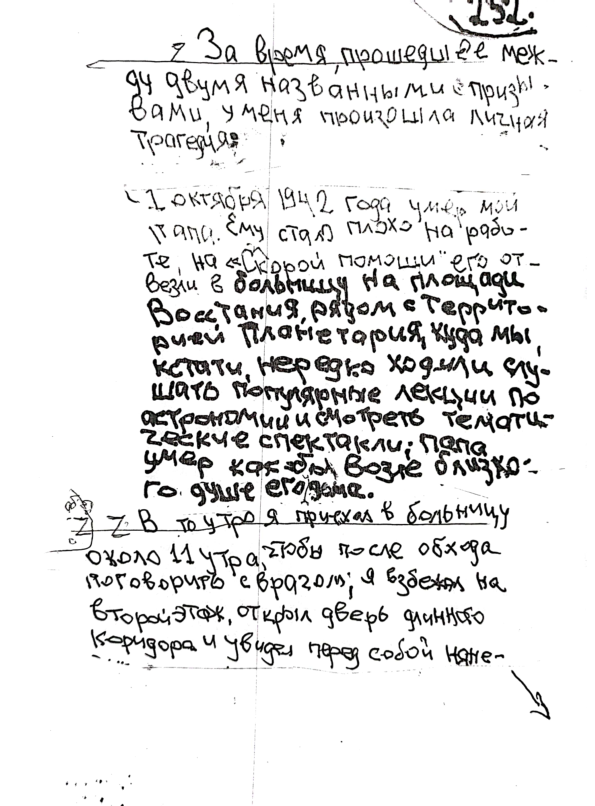 232.
За время, прошедшее меж-
ду двумя названными призы-
вами, у меня произошла личная
трагедия:
1 октября 1942 года умер мой
папа. Ему стало плохо на рабо-
те, на «Скорой помощи" его от-
везли в больницу на площади
Восстания, рядом с террито-
рией Планетария, куда мы,
кстати, нередко ходили слу-
шать популярные лекции по
астрономии и смотреть темати-
ческие спектакли; папа
умер как бы возле близко-
го душе его дома.
Z Z В то утро я приехал в больницу
около 11 утра, чтобы после обхода
поговорить с врачом; я взбежал на
второй этаж, открыл дверь длинного
коридора и увидел перед собой няне-